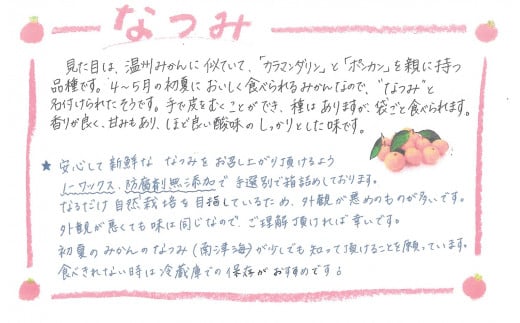 なつみ
見た目は、温州みかんに似ていて、「カラマンダリン」と「ポンカン」を親に持つ
品種です。4～5月の初夏においしく食べられるみかんなので、"なつみ"と
名付けられたそうです。手で皮をむくことができ、種はありますが、袋ごと食べられます。
香りが良く、甘みもあり、ほど良い酸味のしっかりとした味です。
★ 安心して新鮮な なつみをお召し上がり頂けるよう
ノーワックス、防腐剤無添加で手選別で箱詰めしております。
なるだけ自然栽培を目指しているため、外観が悪めのものが多いです。
外観が悪くても味は同じなので、ご理解頂ければ幸いです。
初夏のみかんのなつみ(南津海)が少しでも知って頂けることを願っています。
食べきれない時は冷蔵庫での保存がおすすめです。